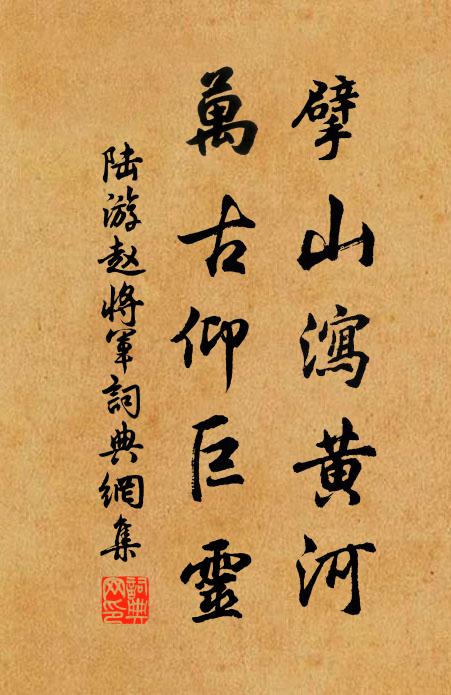 擘山瀉黄河
萬古仰巨靈
陆游赵将軍詞典網集
詞典网印